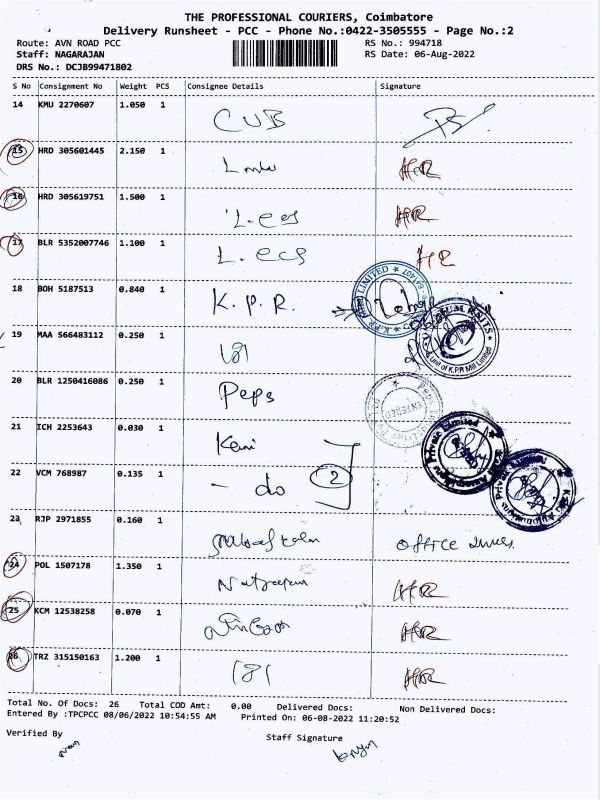 THE PROFESSIONAL COURIERS, Coimbatore
Delivery Runsheet - PCC - Phone No.:0422-3505555 - Page No.:2
Route: AVN ROAD PCC RS No.: 994718
Staff: NAGARAJAN RS Date: 06-Aug-2022
DRS No.: DCJB99471802
S No Consignment No Weight PCS Consignee Details Signature
14 KMU 2270607 1.050 1 CUB
15 HRD 305601445 2.150 1 HR
16 HRD 305619751 1.500 1 L.ecs HR
17 BLR 5352007746 1.100 1 L.ecs HR
18 BOH 5187513 0.840 1 K.P.R.
19 MAA 566483112 0.250 1 181
20 BLR 1250416086 0.250 1 Peps
21 ICH 2253643 0.030 1
22 VCM 768987 0.135 1 - do 2
23 RJP 2971855 0.160 1 office
24 POL 1507178 1.350 1 HR
25 KCM 12538258 0.070 1 HR
26 TRZ 315150163 1.200 1 181 HR
Total No. Of Docs: 26 Total COD Amt: 0.00 Delivered Docs: Non Delivered Docs:
Entered By :TPCPCC 08/06/2022 10:54:55 AM Printed On: 06-08-2022 11:20:52
Verified By Staff Signature